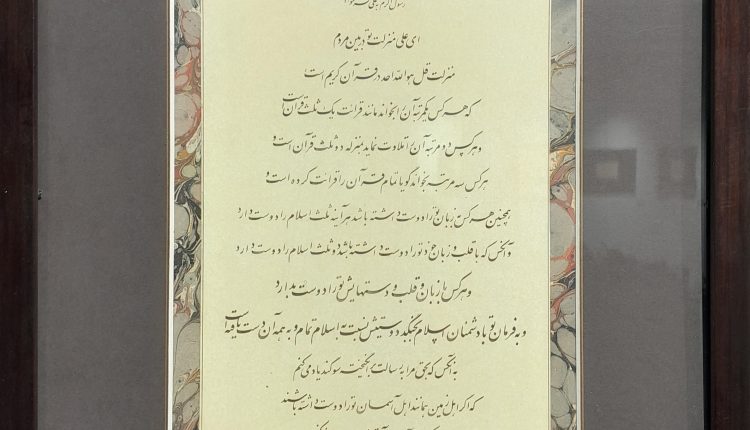 رسول اکرم به علی
ای علی منزلت تو در بین مردم
منزلت قل هو الله احد در قرآن کریم است
که هر کس یکمرتبه آن را بخواند مانند قرائت یک ثلث قرآن است
و هر کس دو مرتبه آن را تلاوت نماید بمنزله دو ثلث قرآن است و
هر کس سه مرتبه بخواند گویا تمام قرآن را قرائت کرده است و
همچنین هر کس بزبان تو را دوست داشته باشد هر آینه ثلث اسلام را دوست دارد
و آنکس که با قلب و زبان خود تو را دوست داشته باشد دو ثلث اسلام را دوست دارد
و هر کس با زبان و قلب و دستهایش تو را دوست بدارد
و به فرمان تو با دشمنان اسلام بجنگد دوستیش نسبت به اسلام تمام و به همه آن دست یافته است
به آنکس که بحق مرا به رسالت برانگیخت سوگند یاد می کنم
که اگر اهل زمین همانند اهل آسمان تو را دوست داشته باشند